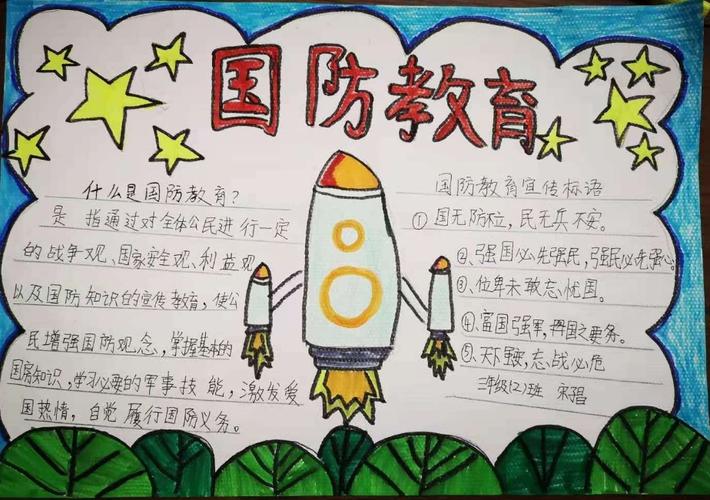 国防教育
什么是国防教育?
是 指通过对全体公民进行一定
的战争观、国家安全观、利益观
以及国防知识的宣传教育,使公
民增强国防观念,掌握基本的
国防知识,学习必要的军事技能,激发爱
国热情,自觉履行国防义务。
国防教育宣传标语
①国无防不立,民无兵不安。
②、强国必先强民,强民必先强心。
③、位卑未敢忘忧国。
④、富国强军,国之要务。
⑤、天下虽安,忘战必危
三年级(2)班 宋